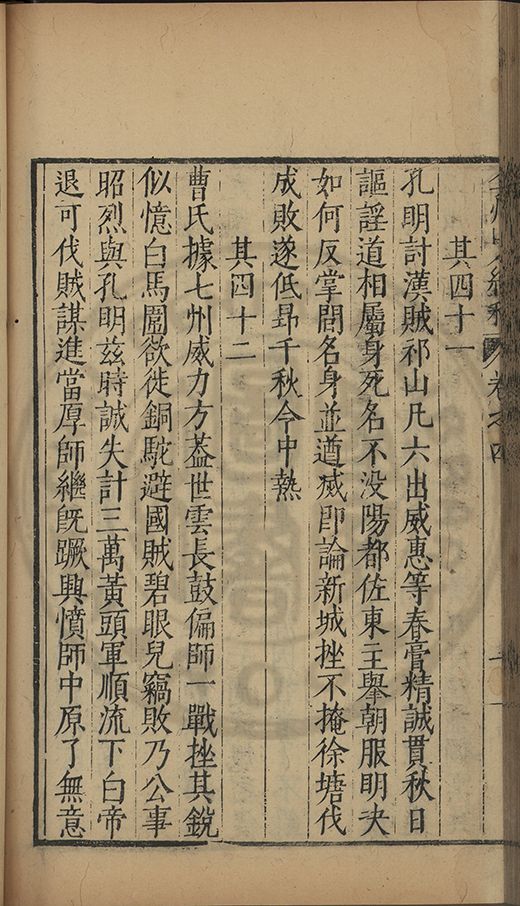 卷之四
其四十一
孔明討漢賊祁山凡六出威惠等春膏精誠貫秋日
謳謡道相屬身死名不没陽都佐東主舉朝服明决
如何反掌間名身並遒烕即論新城挫不掩徐塘伐
成敗遂低昂千秋令中熱
其四十二
曹氏據七州威力方葢世雲長鼓偏師一戰挫其銳
似憶白馬圍欲徙銅駝避國賊碧眼兒竊敗乃公事
昭烈與孔明兹時誠失計三萬黃頭軍順流下白帝
退可伐賊謀進當厚師繼旣蹶興憤師中原了無意